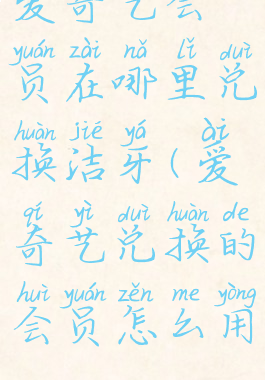 爱奇艺会
yuán zài nǎ lǐ duì
员在哪里兑
huàn jié yá ài
换洁牙(爱
qí yì duì huàn de
奇艺兑换的
huì yuán zěn me yòng
会员怎么用